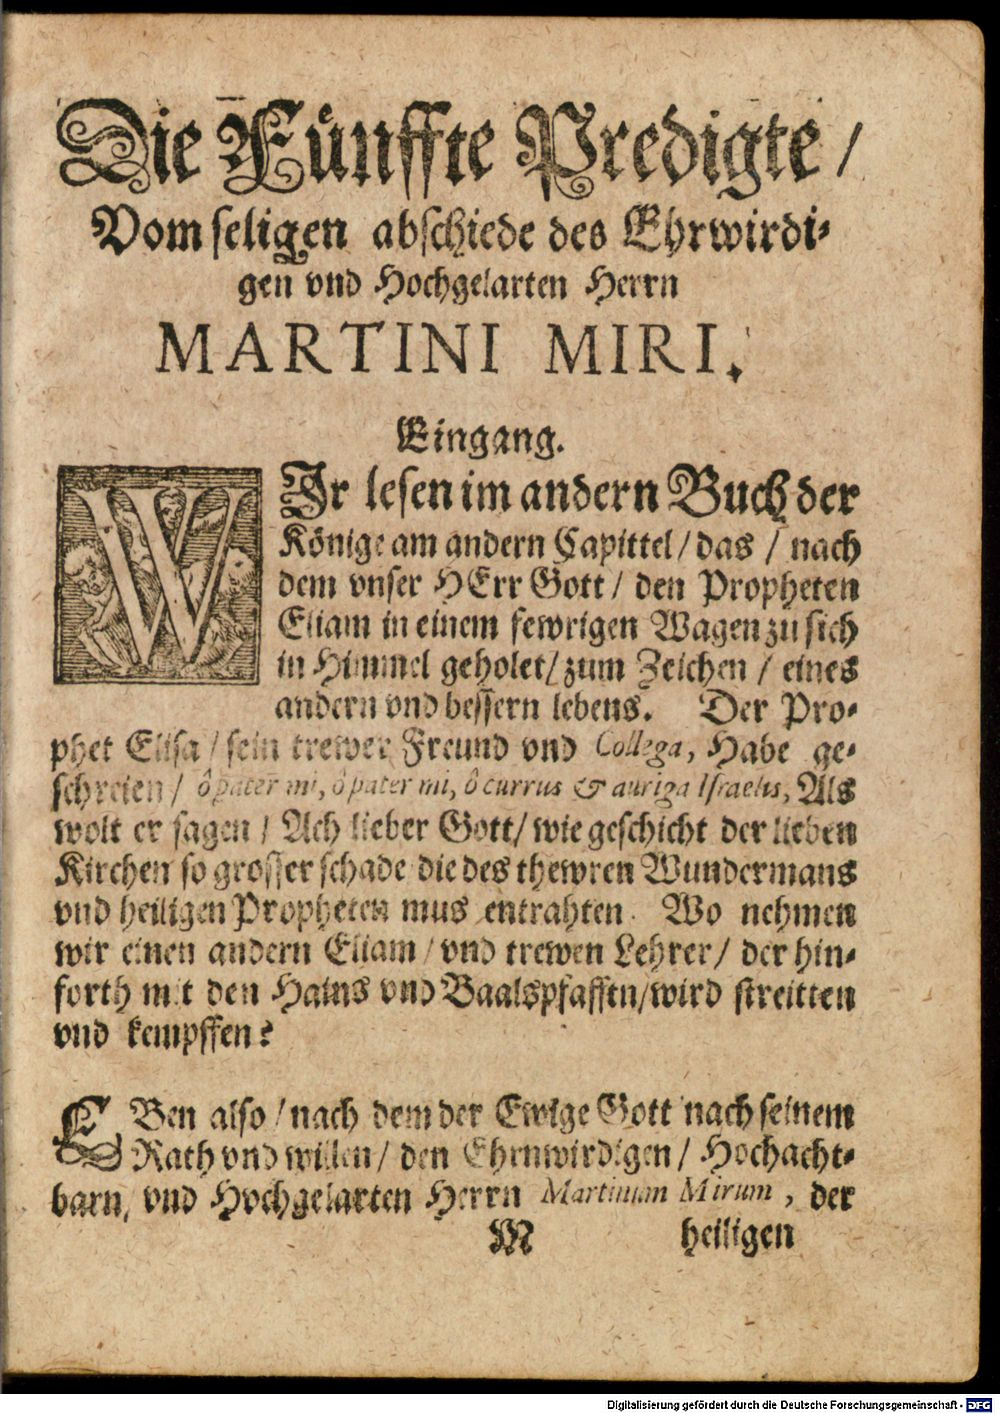 Die Fünffte Predigte /
Vom seligen abschiede des Ehrwirdi-
gen vnd Hochgelarten Herrn
MARTINI MIRI.
Eingang.
WJr lesen im andern Buch der
Könige am andern Capittel / das / nach
dem vnser HErr Gott / den Propheten
Eliam in einem fewrigen Wagen zu sich
in Himmel geholet / zum Zeichen / eines
andern vnd bessern lebens. Der Pro-
phet Elisa / sein trewer Freund vnd Collega, Habe ge-
schreien / ô pater mi, ô pater mi, ô currus & auriga Israelis, Als
wolt er sagen / Ach lieber Gott / wie geschicht der lieben
Kirchen so grosser schade die des thewren Wundermans
vnd heiligen Propheten mus entrahten. Wo nehmen
wir einen andern Eliam / vnd trewen Lehrer / der hin-
forth mit den Hains vnd Baalspfaffen / wird streitten
vnd kempffen?
EBen also / nach dem der Ewige Gott nach seinem
Rath vnd willen / den Ehrnwirdigen / Hochacht-
barn, vnd Hochgelarten Herrn Martinum Mirum, der
M heiligen
Digitalisierung gefördert durch die Deutsche Forschungsgemeinschaft - DFG